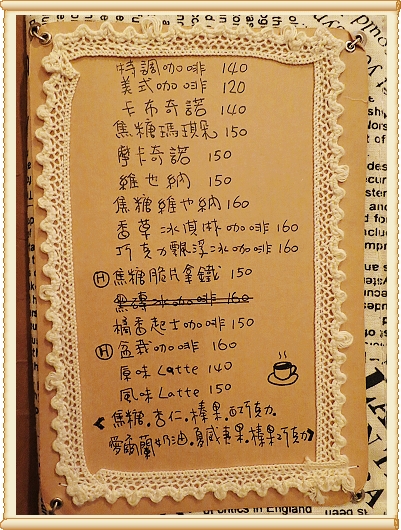 特調咖啡 140
美式咖啡 120
卡布奇諾 140
焦糖瑪琪朵 150
摩卡奇諾 150
維也納 150
焦糖維也納 160
香草冰淇淋咖啡 160
巧克力飄浮冰咖啡 160
Ⓗ焦糖脆片拿鐵 150
黑磚冰咖啡 160
橘香起士咖啡 150
Ⓗ盆栽咖啡 160
原味Latte 140
風味Latte 150
<焦糖.杏仁.榛果.巧克力.
愛爾蘭奶油.夏威夷果.榛果巧克力>
ontics in England